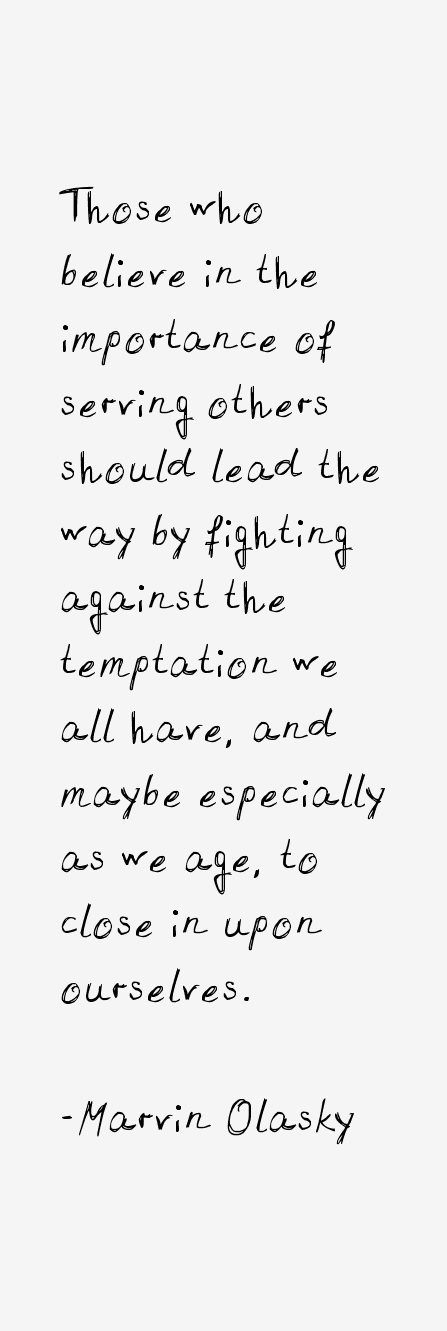 Those who
believe in the
importance of
serving others
should lead the
way by fighting
against the
temptation we
all have, and
maybe especially
as we age, to
close in upon
ourselves.
-Marvin Olasky